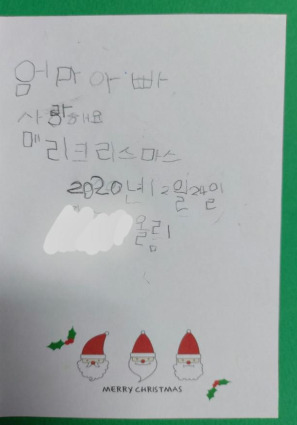 엄마아빠
사랑해요
메리크리스마스
2020년12월24일
올림
MERRY CHRISTMAS